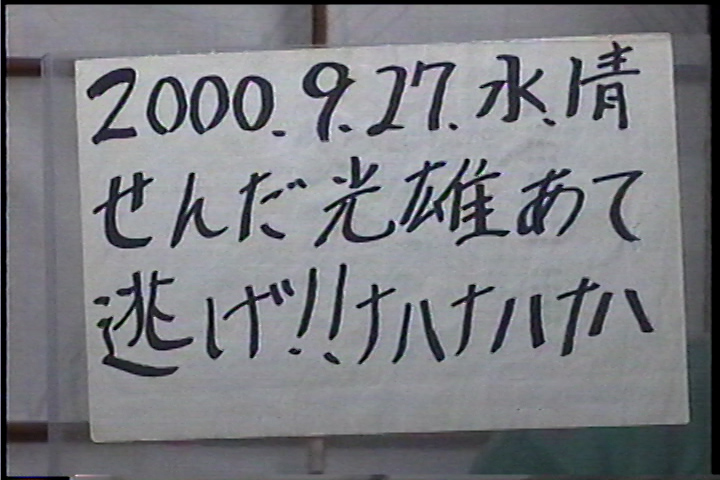 2000.9.27.水.晴
せんだ光雄あて
逃げ!!ナハナハナハ